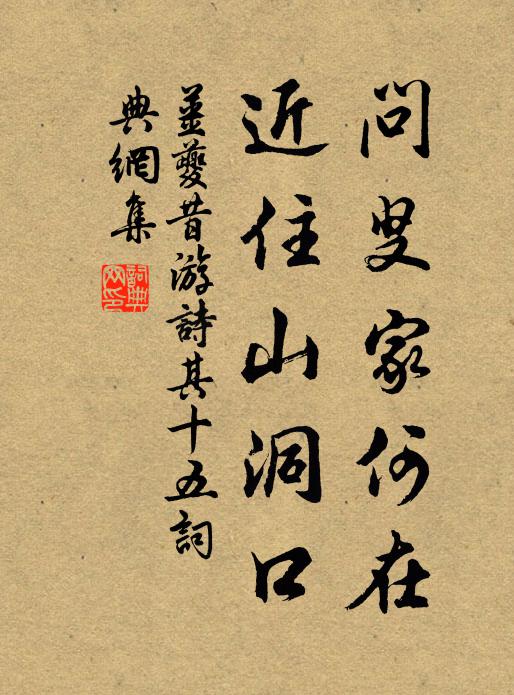 問叟家何在
近住山洞口
姜夔昔游詩其十五詞
典網集
詞典
网印